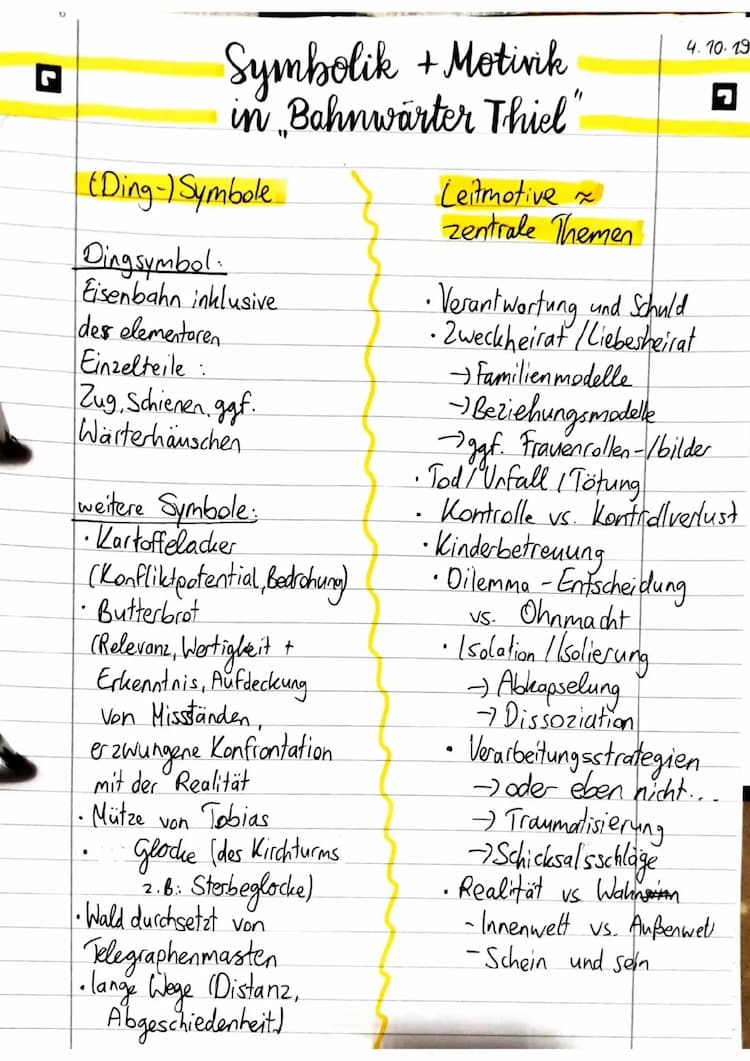 4.10.19
Symbolik + Motivik
in „Bahnwärter Thiel"
(Ding-) Symbole
Dingsymbol:
Eisenbahn inklusive
der elementaren
Einzelteile :
Zug, Schienen, ggf.
Wärterhäuschen
weitere Symbole:
· Kartoffelacker
(Konfliktpotential, Bedrohung)
· Butterbrot
(Relevanz, Wertigkeit +
Erkenntnis, Aufdeckung
von Misständen,
erzwungene Konfrontation
mit der Realität
· Mütze von Tobias
· Glocke (des Kirchturms
z.B: Sterbeglocke)
· Wald durchsetzt von
Telegraphenmasten
· lange Wege (Distanz,
Abgeschiedenheit)
Leitmotive ≈
zentrale Themen
· Verantwortung und Schuld
· Zweckheirat / Liebesheirat
→ Familienmodelle
→ Beziehungsmodelle
→ ggf. Frauenrollen-/bilder
· Tod / Unfall / Tötung
· Kontrolle vs. Kontrollverlust
· Kinderbetreuung
· Dilemma - Entscheidung
vs. Ohnmacht
· Isolation / Isolierung
→ Abkapselung
→ Dissoziation
· Verarbeitungsstrategien
→ oder eben nicht...
→ Traumatisierung
→ Schicksalsschläge
· Realität vs Wahn
- Innenwelt vs. Außenwelt
- Schein und sein